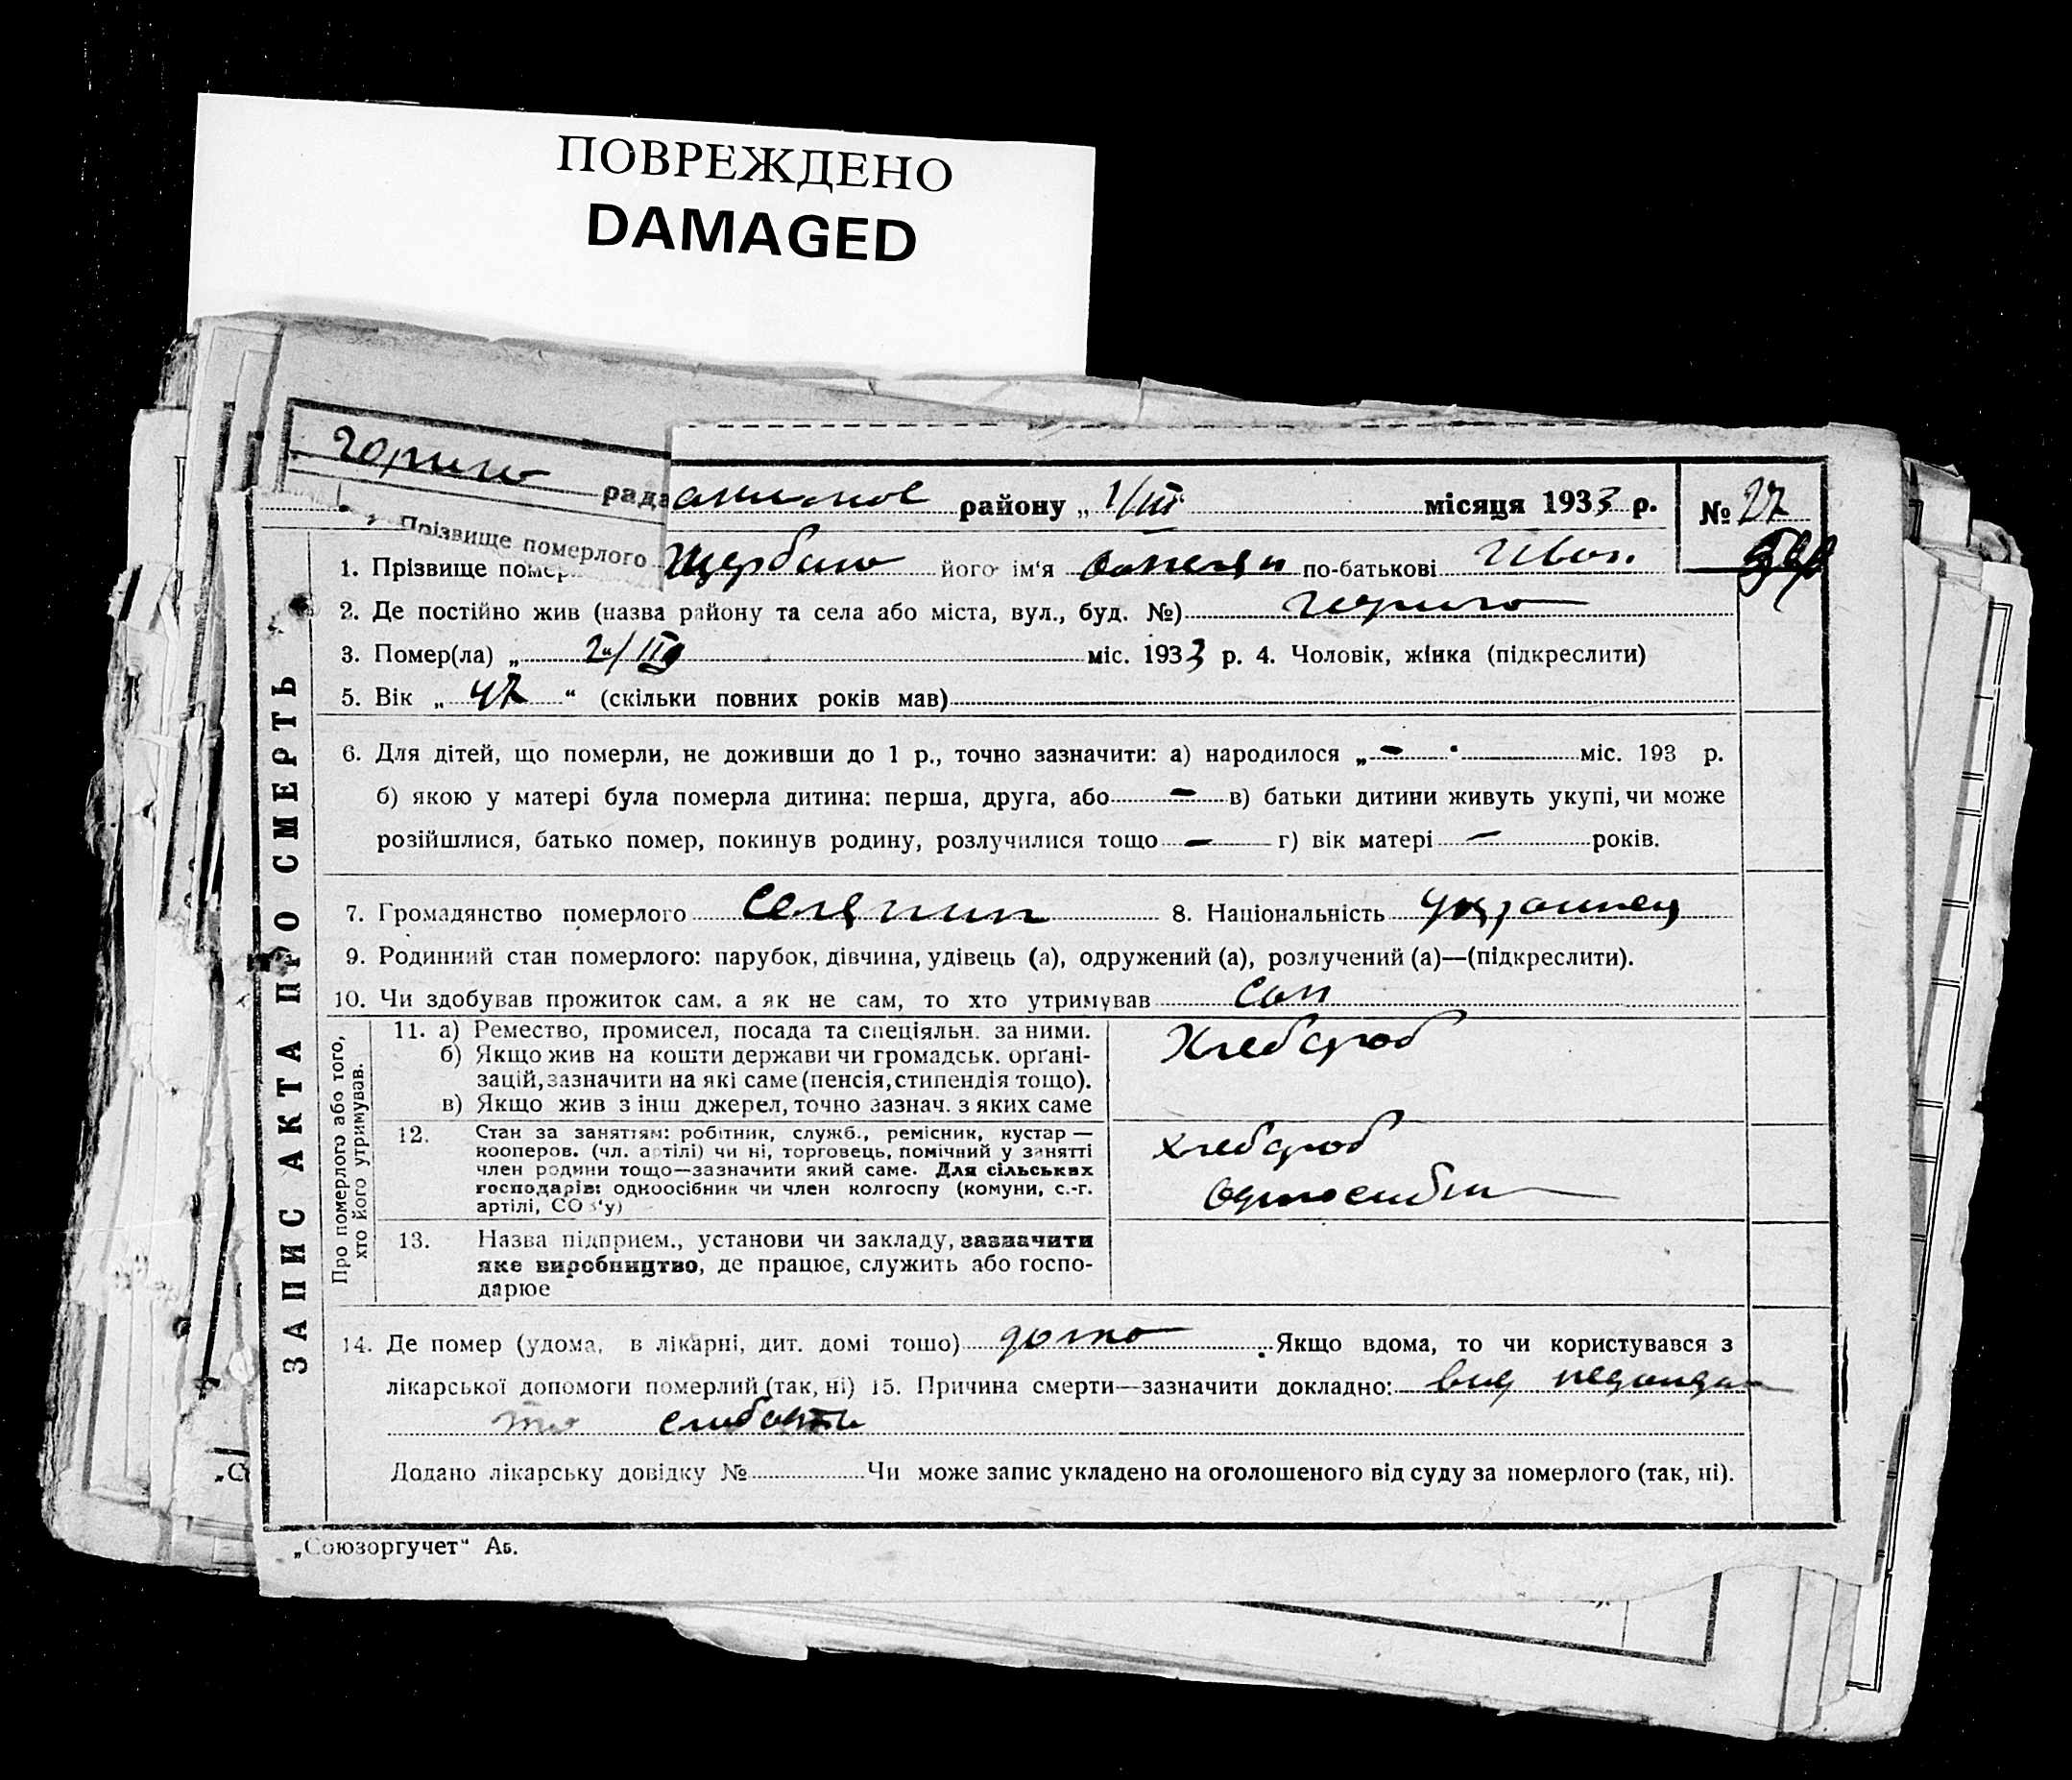 ПОВРЕЖДЕНО
DAMAGED
рада району „ 1/III місяця 1933 р. № 27
Прізвище померлого
1. Прізвище помер Щербань його ім'я по-батькові Иван
2. Де постійно жив (назва району та села або міста, вул., буд. №)
3. Помер(ла) „ 2/III міс. 1933 р. 4. Чоловік, жінка (підкреслити)
5. Вік „ 47 “ (скільки повних років мав)
6. Для дітей, що померли, не доживши до 1 р., точно зазначити: а) народилося „ — “ міс. 193 р.
б) якою у матері була померла дитина: перша, друга, або — в) батьки дитини живуть укупі, чи може
розійшлися, батько помер, покинув родину, розлучилися тощо — г) вік матері — років.
7. Громадянство померлого селянин 8. Національність украинец
9. Родинний стан померлого: парубок, дівчина, удівець (а), одружений (а), розлучений (а)—(підкреслити).
10. Чи здобував прожиток сам, а як не сам, то хто утримував сам
ЗАПИС АКТА ПРО СМЕРТЬ
Про померлого або того,
хто його утримував.
11. а) Ремество, промисел, посада та спеціяльн. за ними.
б) Якщо жив на кошти держави чи громадськ. орґані-
зацій, зазначити на які саме (пенсія, стипендія тощо).
в) Якщо жив з інш джерел, точно зазнач. з яких саме
Хлебороб
12. Стан за заняттям: робітник, служб., ремісник, кустар —
кооперов. (чл. артілі) чи ні, торговець, помічний у занятті
член родини тощо—зазначити який саме. Для сільських
господарів: одноосібник чи член колгоспу (комуни, с.-г.
артілі, СОЗ'у)
хлебороб
13. Назва підприєм., установи чи закладу, зазначити
яке виробництво, де працює, служить або госпо-
дарює
14. Де помер (удома, в лікарні, дит. домі тощо) дома. Якщо вдома, то чи користувався з
лікарської допомоги померлий (так, ні) 15. Причина смерти—зазначити докладно: вид
Додано лікарську довідку № Чи може запис укладено на оголошеного від суду за померлого (так, ні).
„Союзоргучет“ Аб.